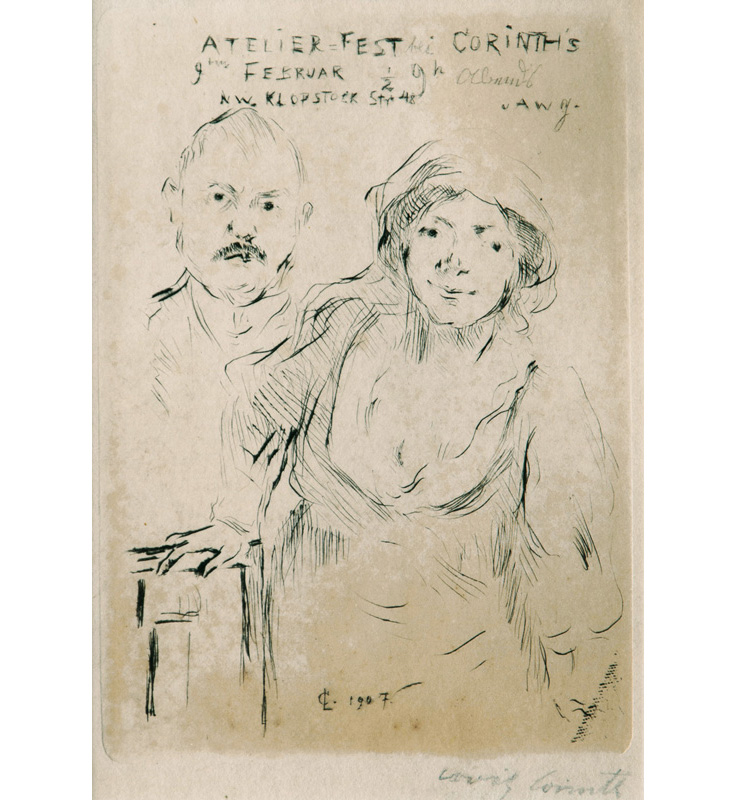 ATELIER=FEST bei CORINTH'S
9ten FEBRUAR ½ 9h Abends
NW. KLOPSTOCK Str 48
U A W g.
CL. 1907.
Lovis Corinth